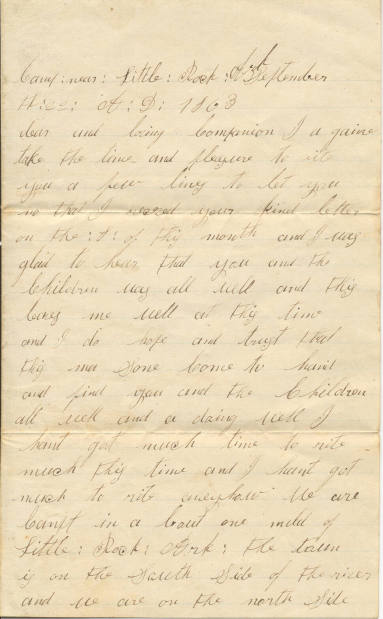 Camp: near: Little: Rock: Ark September
A: D: 1863
dear and loving Companion I a gaine
take the time and pleasure to rite
you a few lines to let you
no that I receved your kind letter
on the of this month and I was
glad to hear that you and the
Children was all well and this
leves me well at this time
and I do hope and trust that
this ma sone Come to hand
and find you and the Children
all well and a doing well I
hant got much time to rite
much this time and I hant got
much to rite anyhow We are
Campt in a bout one mild of
Little: Rock: Ark: the town
is on the South Side of the river
and we are on the north Side